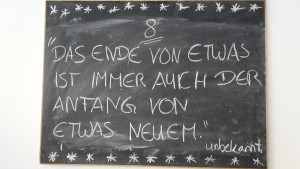 8
"DAS ENDE VON ETWAS
IST IMMER AUCH DER
ANFANG VON
ETWAS NEUEM."
unbekannt